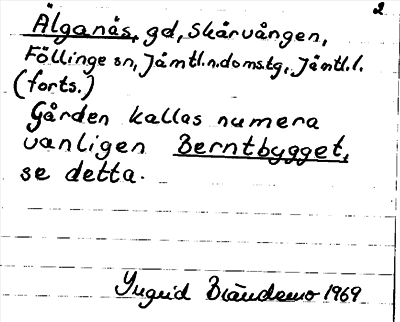 2
Älganäs, gd, Skärvången,
Föllinge sn, Jämtl.n.doms.tg, Jämtl.l.
(forts.)
Gården kallas numera
vanligen Berntbygget,
se detta.
Yngvid Brändemo 1969